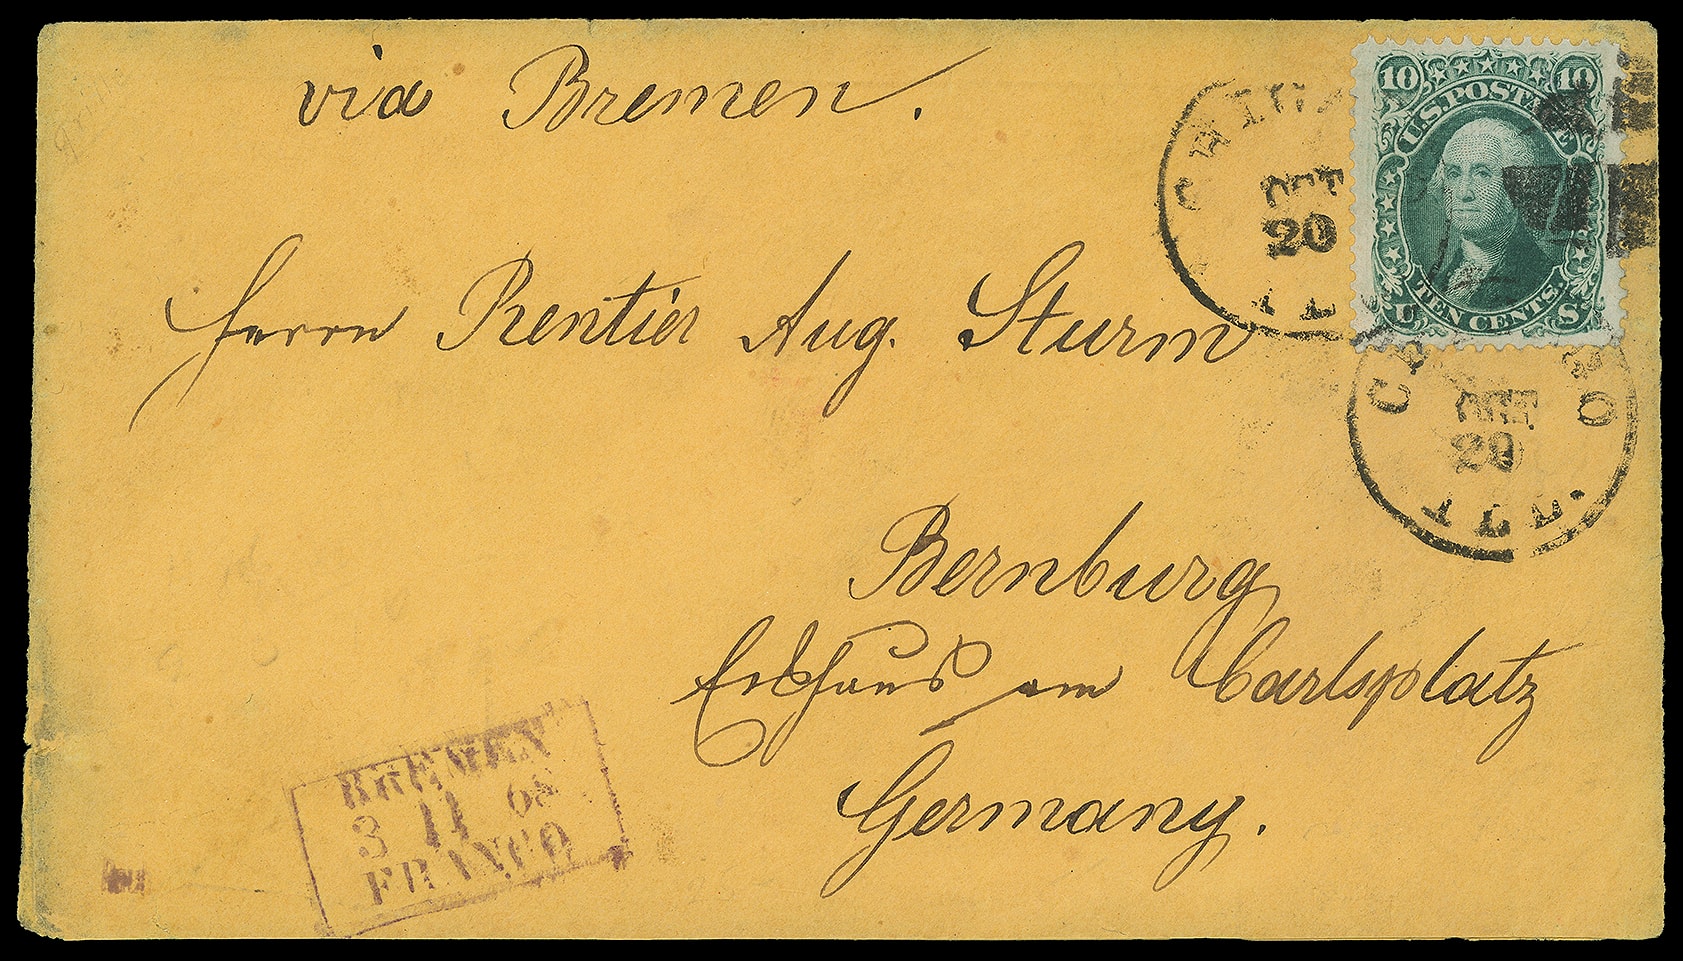 via Bremen.
10 10
U.S. POSTAGE
TEN CENTS.
U S
CHICAGO
OCT
20
ILL
Herrn Rentier Aug. Sturm
CHICAGO
20
ILL.
Bernburg
Eckhaus am Carlsplatz
Germany.
BREMEN
3 11 68
FRANCO